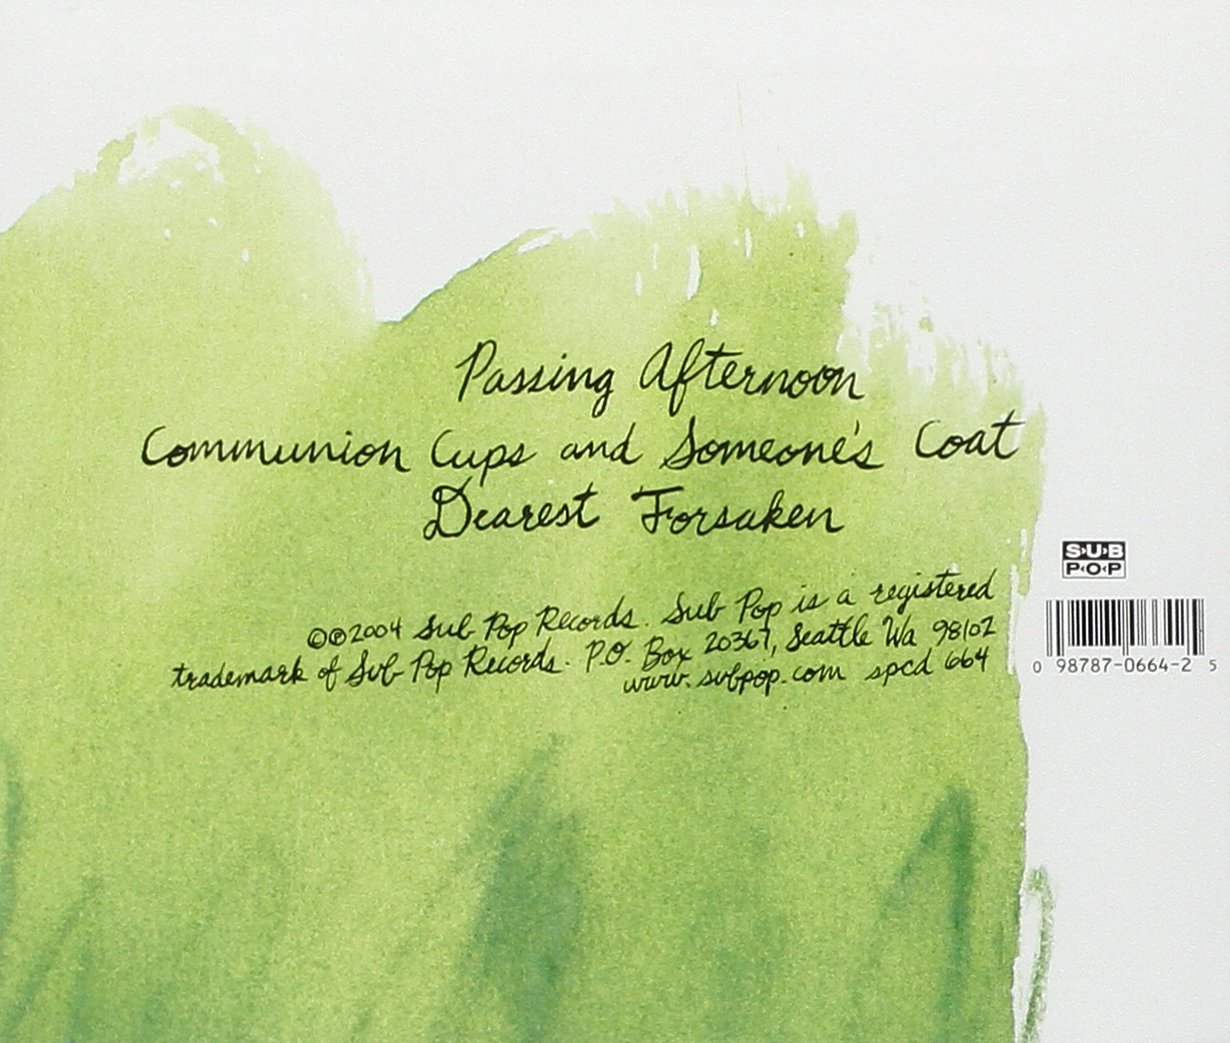 Passing Afternoon
Communion Cups and Someone's Coat
Dearest Forsaken
©℗2004 Sub Pop Records. Sub Pop is a registered
trademark of Sub Pop Records. P.O. Box 20367, Seattle Wa 98102
www.subpop.com spcd 664
S·U·B
P·O·P
0 98787-0664-2 5